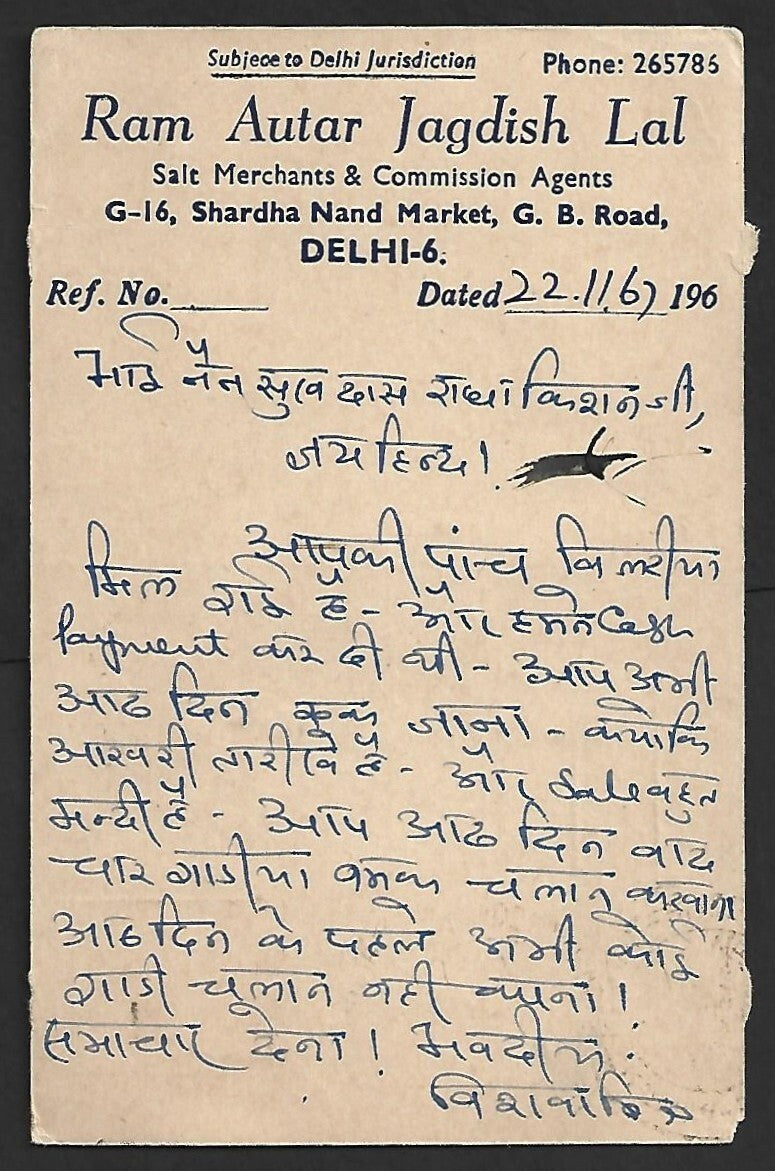 Subject to Delhi Jurisdiction Phone: 265786
Ram Autar Jagdish Lal
Salt Merchants & Commission Agents
G-16, Shardha Nand Market, G. B. Road,
DELHI-6.
Ref. No. Dated 22.11.67 196
भाई नैन सुख दास राधा किशन जी,
जय हिन्द।
आपकी पांच बिल्टीया
मिल गई है - और हमने Cash
Payment कर दी थी - आप अभी
आठ दिन रूक जाना - क्योकि
आखरी तारीखे है - और Sale बहुत
मन्दी है - आप आठ दिन बाद
चार गाडीया नमक चलान करवाना
आठ दिन के पहले अभी कोई
गाडी चलान नही करना।
समाचार देना। भवदीय: